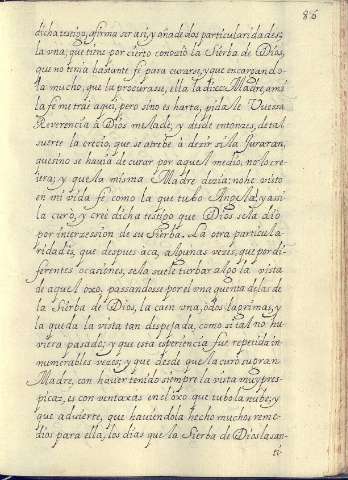 86
dicha testigo, afirma ser asi, y añade dos particularidades;
la vna, que tiene por cierto conozio la Sierba de Dios,
que no tenia bastante fe para curarse, y que encargando-
la mucho, que la procurasse, ella la dixo: Madre, a mi
la fe me trae aqui, pero sino es harta, pidale Vuessa
Reverencia à Dios me la dè; y desde entonzes, de tal
suerte la creciò, que se atrebe à dezir si la juraran,
que sino se havia de curar por aquel medio, no lo cre-
iera; y que la misma Madre dezia: no he visto
en mi vida fe como la que tubo Angela: y assi
la curo, y creè dicha testigo que Dios se la dio
por interzession de su Sierba. La otra particula-
ridad es, que despues acà, algunas vezes, que por di-
ferentes ocasiones, se la suele turbar algo la vista
de aquel oxo, passandosse por el vna quenta de las de
la Sierba de Dios, la caen vna, ò dos lagrimas, y
la queda la vista tan despejada, como si tal no hu-
viera pasado; y que esta esperiencia fue repetida in-
numerables vezes; y que desde que la curò su gran
Madre, con haver tenido siempre la vista muy pers-
picaz, es con ventaxas en el oxo que tubo la nube; y
que advierte, que haviendola hecho muchos reme-
dios para ella, los dias que la Sierba de Dios la san-
ti-